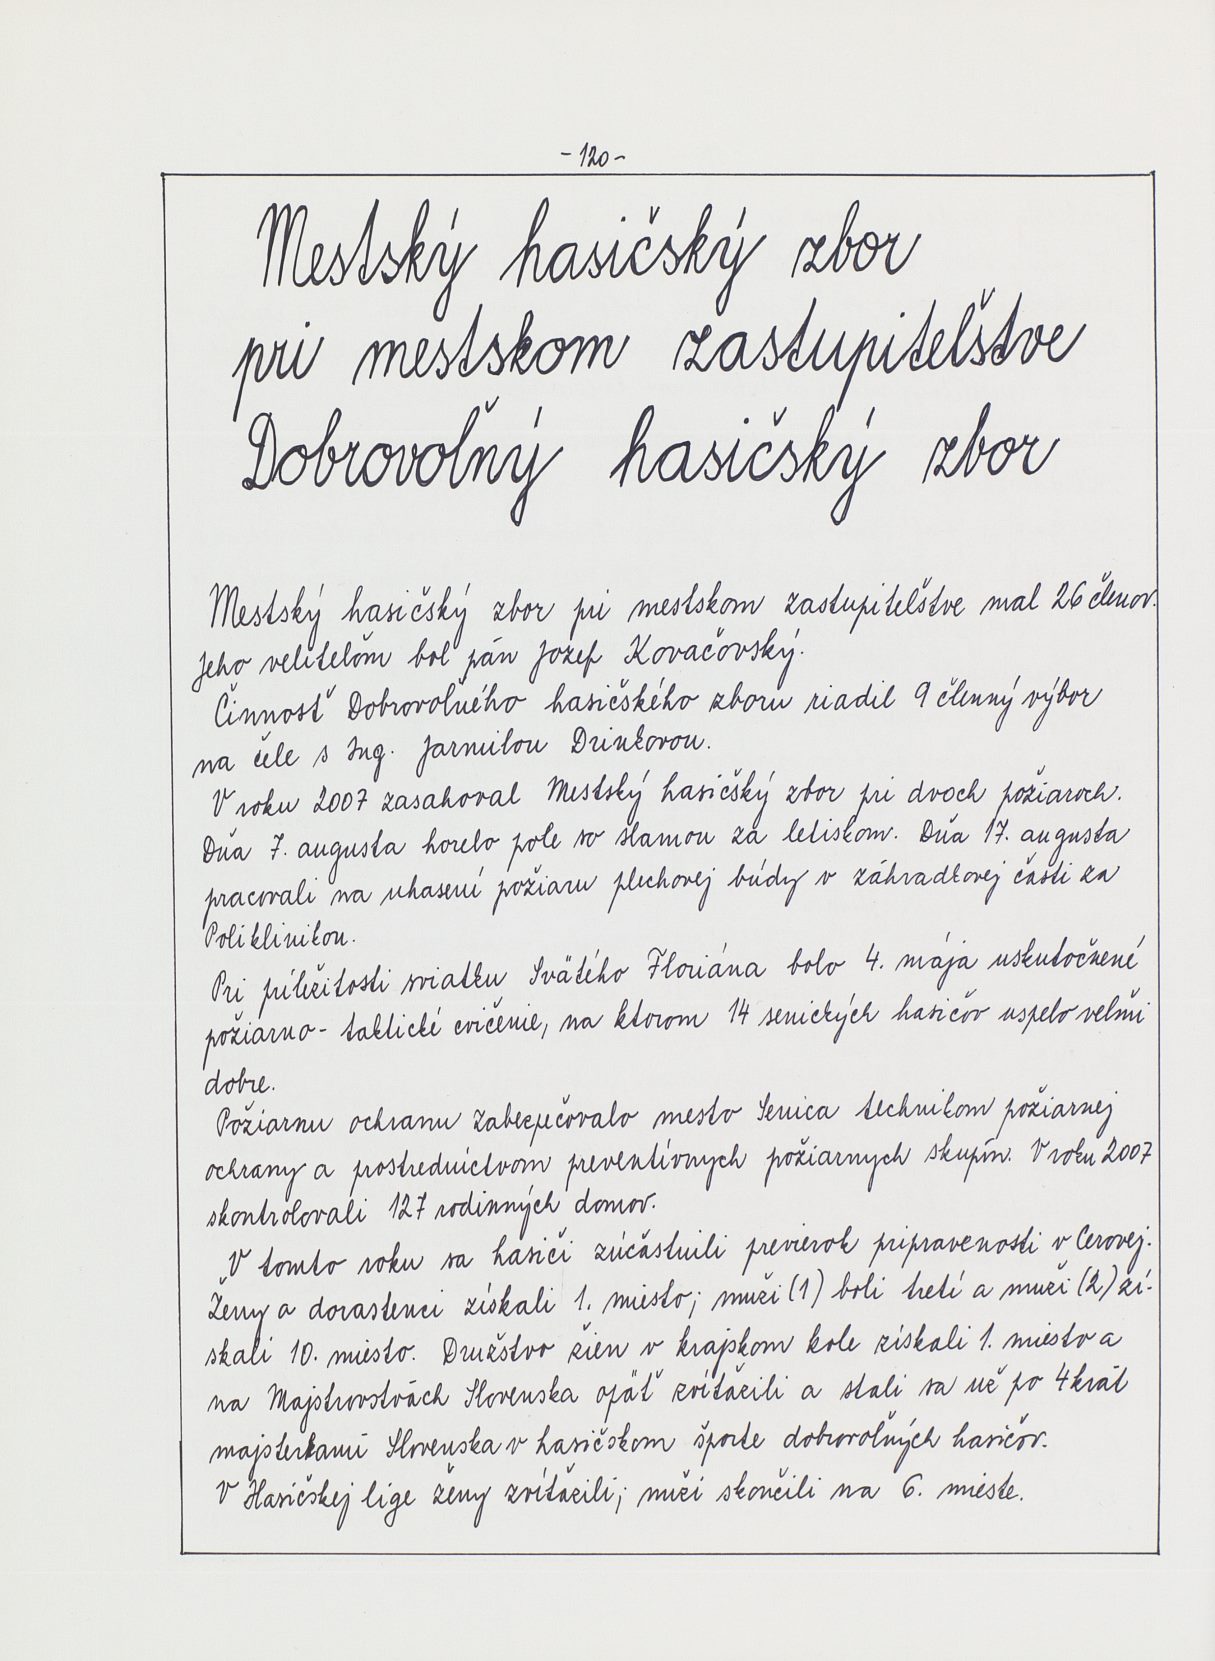 - 120 -
Mestský hasičský zbor
pri mestskom zastupiteľstve
Dobrovoľný hasičský zbor
Mestský hasičský zbor pri mestskom zastupiteľstve mal 26 členov.
Jeho veliteľom bol pán Jozef Kovačovský.
Činnosť Dobrovoľného hasičského zboru riadil 9 členný výbor
na čele s Ing. Jarmilou Drinkovou.
V roku 2007 zasahoval Mestský hasičský zbor pri dvoch požiaroch.
Dňa 7. augusta horelo pole so slamou za letiskom. Dňa 17. augusta
pracovali na uhasení požiaru plechovej búdy v záhradkovej časti za
Poliklinikou.
Pri príležitosti sviatku Svätého Floriána bolo 4. mája uskutočnené
požiarno - taktické cvičenie, na ktorom 14 senických hasičov uspelo veľmi
dobre.
Požiarnu ochranu zabezpečovalo mesto Senica technikom požiarnej
ochrany a prostredníctvom preventívnych požiarnych skupín. V roku 2007
skontrolovali 127 rodinných domov.
V tomto roku sa hasiči zúčastnili previerok pripravenosti v Cerovej.
Ženy a dorastenci získali 1. miesto; muži (1) boli tretí a muži (2) zí-
skali 10. miesto. Družstvo žien v krajskom kole získali 1. miesto a
na Majstrovstvách Slovenska opäť zvíťazili a stali sa už po 4 krát
majsterkami Slovenska v hasičskom športe dobrovoľných hasičov.
V Hasičskej lige ženy zvíťazili; muži skončili na 6. mieste.